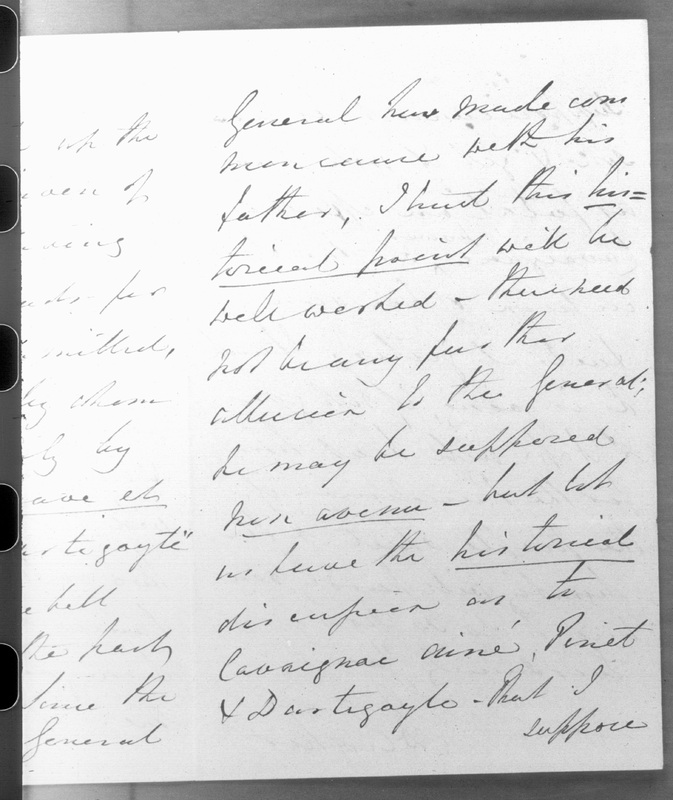 up the
of
for
mitted,
by whom
by
Cave et
Dartigoyte"
hell
the party
Since the
General
General have made com
mon cause with his
father, I trust this his=
torical point will be
well worked - there need
not be any further
allusion to the General;
he may be supposed
non avenu - but let
us have the historical
discussion as to
Cavaignac ainé, Pinet
& Dartigoyte - That I
suppose